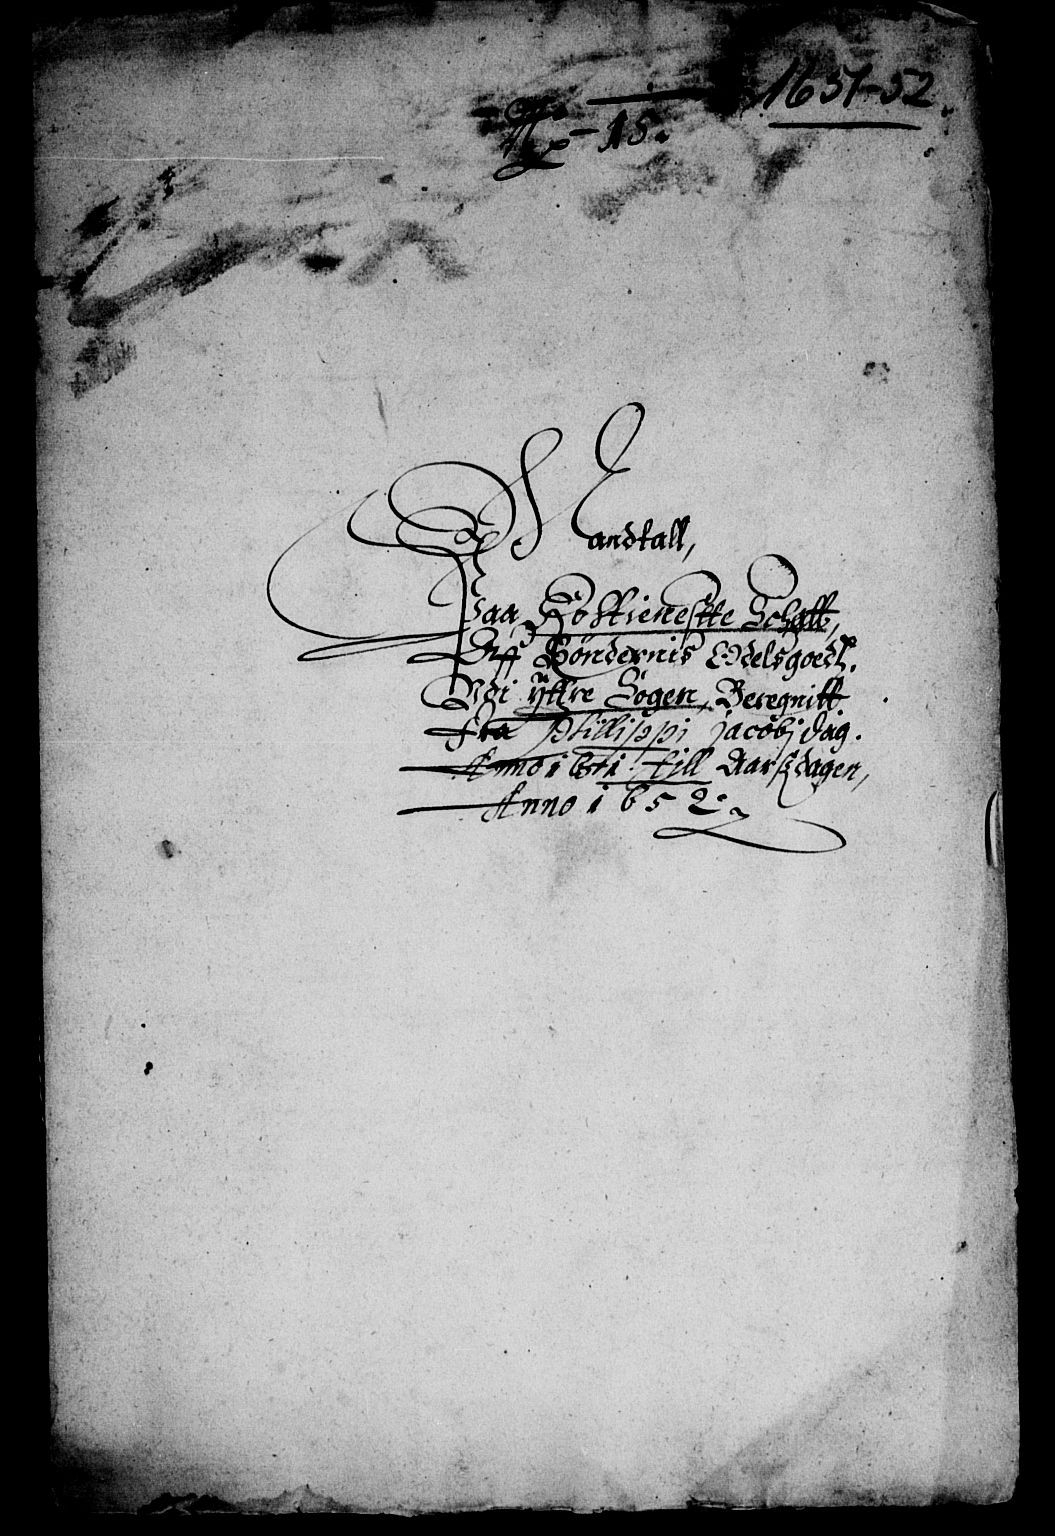 1651-52.
No - 15.
Mandtall,
Paa Rostienestte Schatt,
Aff Bøndernis Odelsgoedz.
Udi Ÿttre Sogen, Beregnitt
fra Phillippi jacobj dag.
Anno 1651. till Aarßdagen,
Anno 1652.